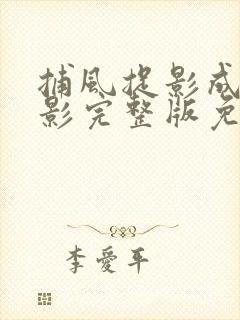 捕风捉影成
影完整版免
李爱平